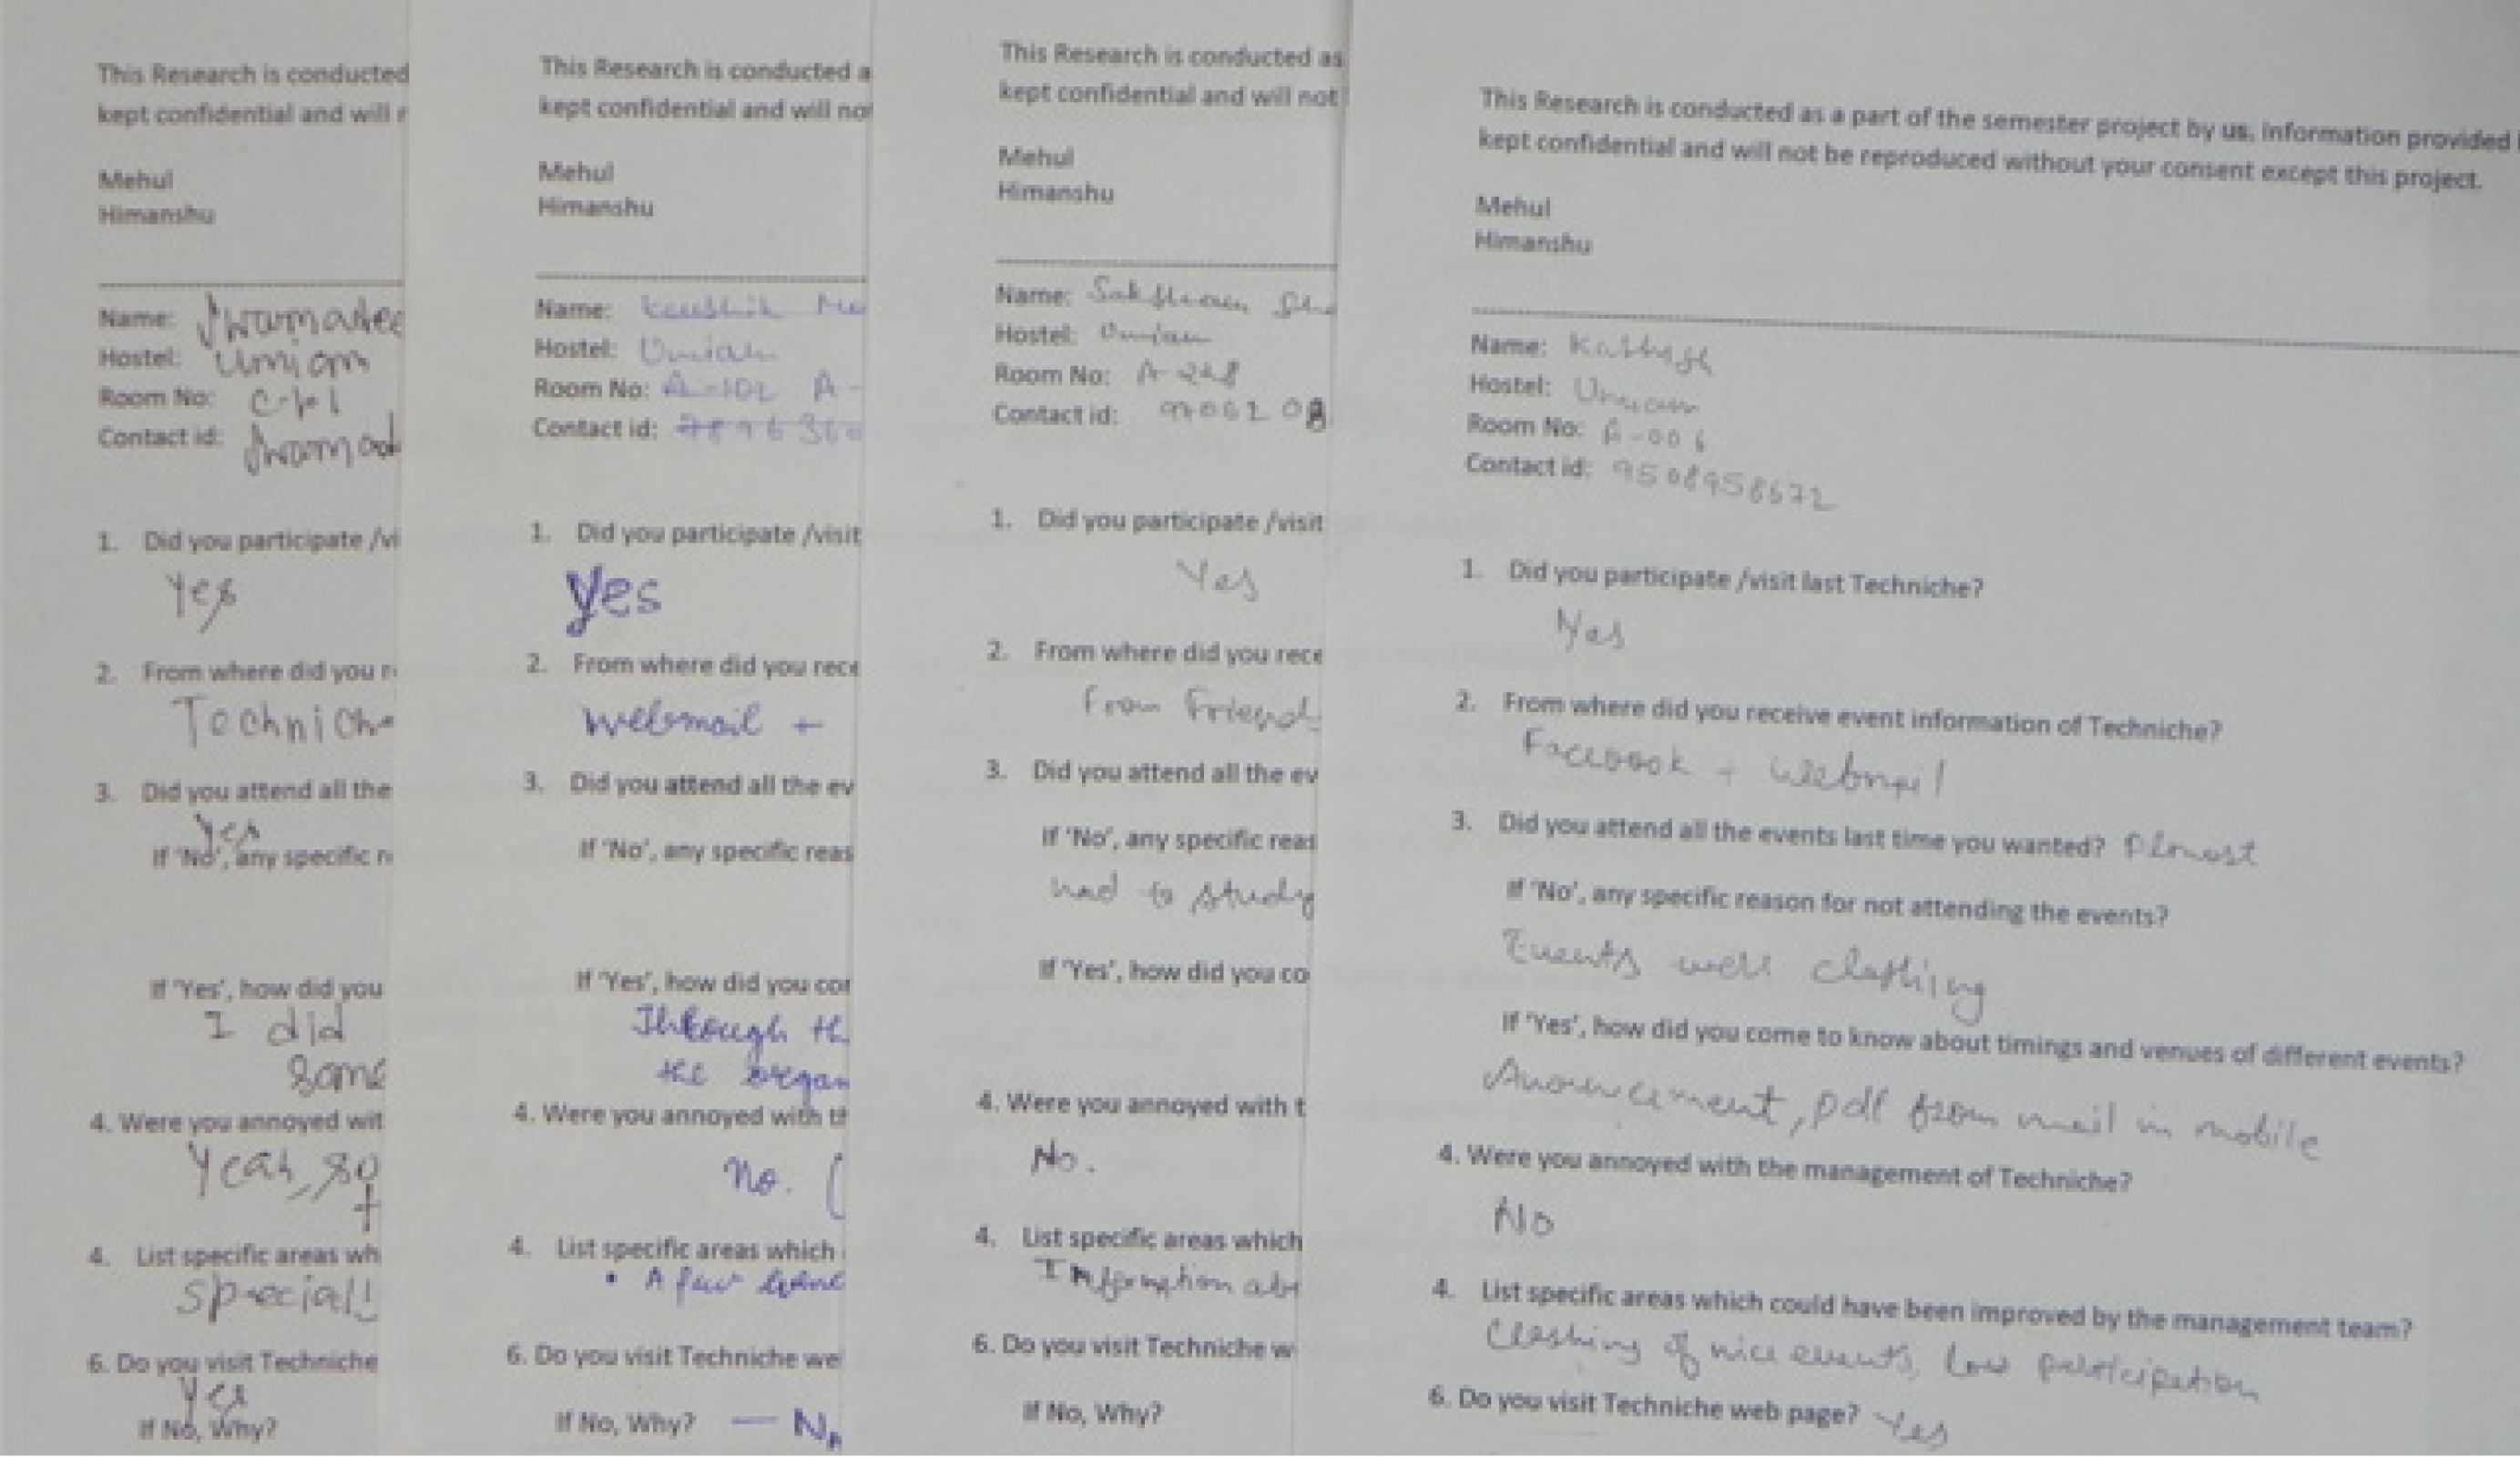 This Research is conducted
kept confidential and will r
Mehul
Himanshu
Name:
Hostel: Umiam
Room No:
Contact id:
1. Did you participate /vi
Yes
2. From where did you r
Technich
3. Did you attend all the
Yes
If 'No', any specific r
If 'Yes', how did you
I did
some
4. Were you annoyed wit
Yeah, so
4. List specific areas wh
special!
6. Do you visit Techniche
Yes
If No, Why?
This Research is conducted a
kept confidential and will not
Mehul
Himanshu
Name: Kaushik
Hostel: Umiam
Room No: A-102 A-
Contact id: 7896360
1. Did you participate /visit
Yes
2. From where did you rece
Webmail +
3. Did you attend all the ev
If 'No', any specific reas
If 'Yes', how did you con
Through th
the organ
4. Were you annoyed with th
No. (
4. List specific areas which
• A few
6. Do you visit Techniche we
If No, Why? — NA
This Research is conducted as
kept confidential and will not
Mehul
Himanshu
Name:
Hostel: Umiam
Room No: A-228
Contact id:
1. Did you participate /visit
Yes
2. From where did you rece
From Friends
3. Did you attend all the ev
If 'No', any specific reas
had to study
If 'Yes', how did you co
4. Were you annoyed with t
No.
4. List specific areas which
Information abo
6. Do you visit Techniche w
If No, Why?
This Research is conducted as a part of the semester project by us. Information provided
kept confidential and will not be reproduced without your consent except this project.
Mehul
Himanshu
Name:
Hostel: Umiam
Room No: A-006
Contact id: 9508958672
1. Did you participate /visit last Techniche?
Yes
2. From where did you receive event information of Techniche?
Facebook + Webmail
3. Did you attend all the events last time you wanted? Almost
If 'No', any specific reason for not attending the events?
Events were clashing
If 'Yes', how did you come to know about timings and venues of different events?
Anouncement, pdf from mail in mobile
4. Were you annoyed with the management of Techniche?
No
4. List specific areas which could have been improved by the management team?
Clashing of nice events, low participation
6. Do you visit Techniche web page? Yes